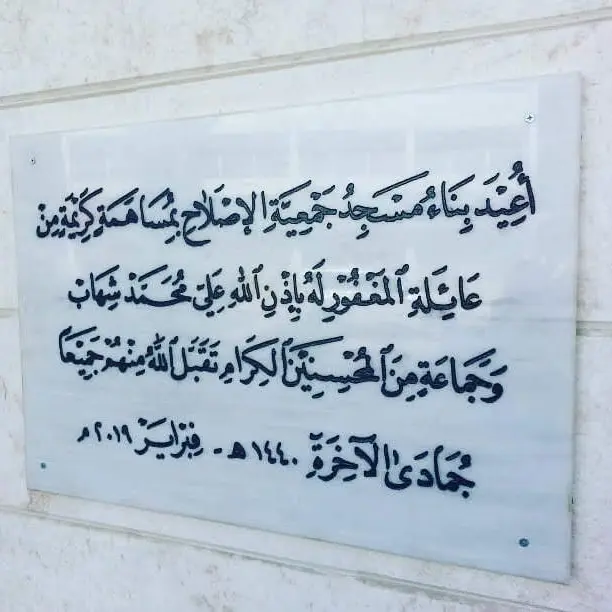 أُعِيْدَ بِنَاءُ مَسْجِدُ جَمْعِيَّةِ الإِصْلَاحِ بِمُسَاهَمَةٍ كَرِيْمَةٍ مِنْ
عَائِلَةِ المَغْفُوْرِ لَهُ بِإِذْنِ اللهِ عَلِيّ مُحَمَّدْ شِهَابْ
وَجَمَاعَةٍ مِنَ المُحْسِنِيْنَ الكِرَامِ تَقَبَّلَ اللهُ مِنْهُمْ جَمِيْعًا
جُمَادَىٰ الآخِرَةِ ١٤٤٠ هـ - فِبْرَايَرْ ٢٠١٩ م